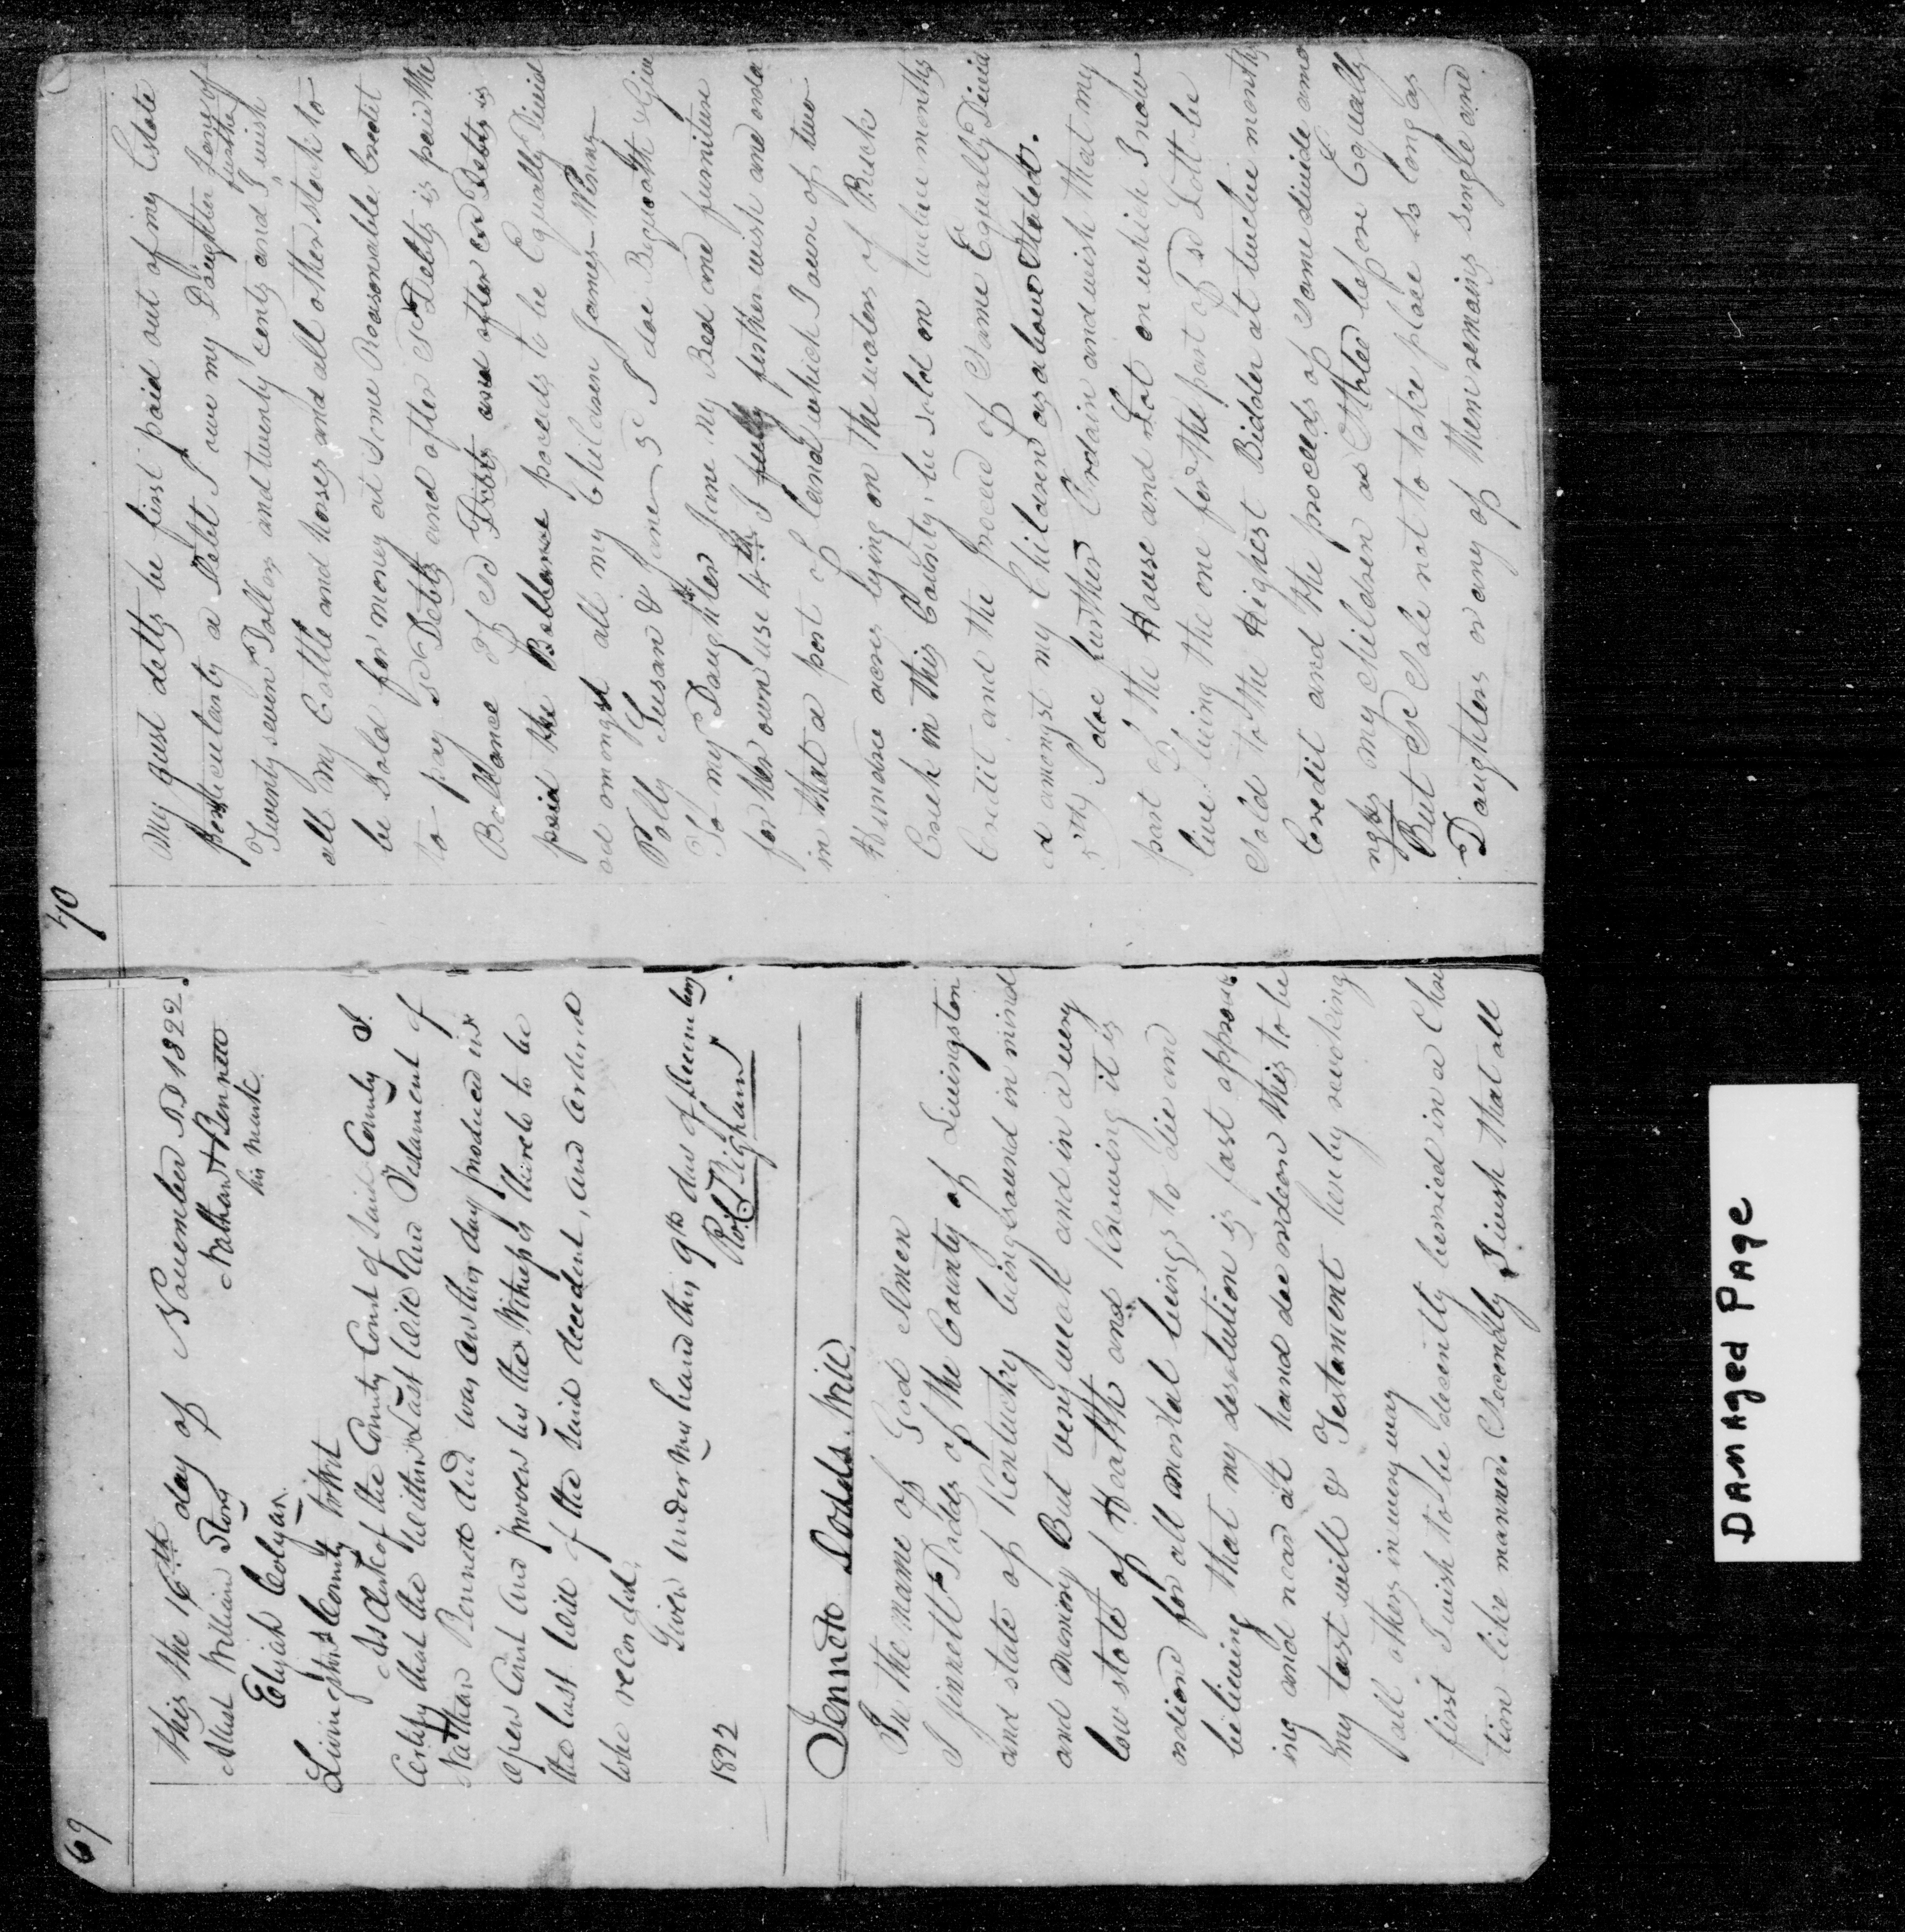 69
this the 16th day of November AD 1822.
Attest William Story Nathan + Bennett
Elijah Colyar. his mark
Livingston County towit
As Clerk of the County Court of said County I
Certify that the within Last Will And Testament of
Nathan Bennett Dec'd was on this day produced in
open Court and proven by the Witnesses thereto to be
the last Will of the said decedent, and ordered
to be recorded.
Given under my hand this 9th day of December
1822 Rob
Jenneto Dodds Will
In the name of God Amen
I Jinnett Dodds of the County of Livingston
and state of Kentucky being sound in mind
and memory But very weak and in a very
low state of Health and knowing it is
ordiend for all mortal beings to die and
believing that my desolution is fast approach
ing and near at hand doe ordeen this to be
my last will & Testament hereby revoking
all others in every way
first I wish to be desently burried in a Chris
tion like manner Secondly I wish that all
70
My just detts be first paid out of my Estate
perticulanty a Debt I owe my Daughter Jane of
Twenty seven Dollars and twenty cents and I further wish
all my Cattle and Horses and all other stock to
be Sold for money at some Reasonable Credit
to pay sd Debts and after sd Debts is paid the
Ballance of sd Debts are after sd Debts is
paid the Ballance proceeds to be Equally Divid
ed amongst all my Children James
Polly Susan & Jane 3d I doe Bequeath & Give
To my Daughter Jane my Bed and furniture
for her own use 4th I fully further wish and orda
in that a part of land which I own of two
Hundred acres lying on the waters of Buck
Creek in this County, be sold on twelve months
Credit and the proceed of Same Equally Divid
ed amongst my Children as above Stated.
5thly I doe further Ordain and wish that my
part of the House and Lot on which I now
live being the one for the part of sd Lott be
Sold to the Highest Bidder at twelve months
Credit and the proceeds of Same divide amo
ngst my children as Stated before Equally
But sd Sale not to take place so long as
Daughters or any of them remains single and
DAMAGED PAGE